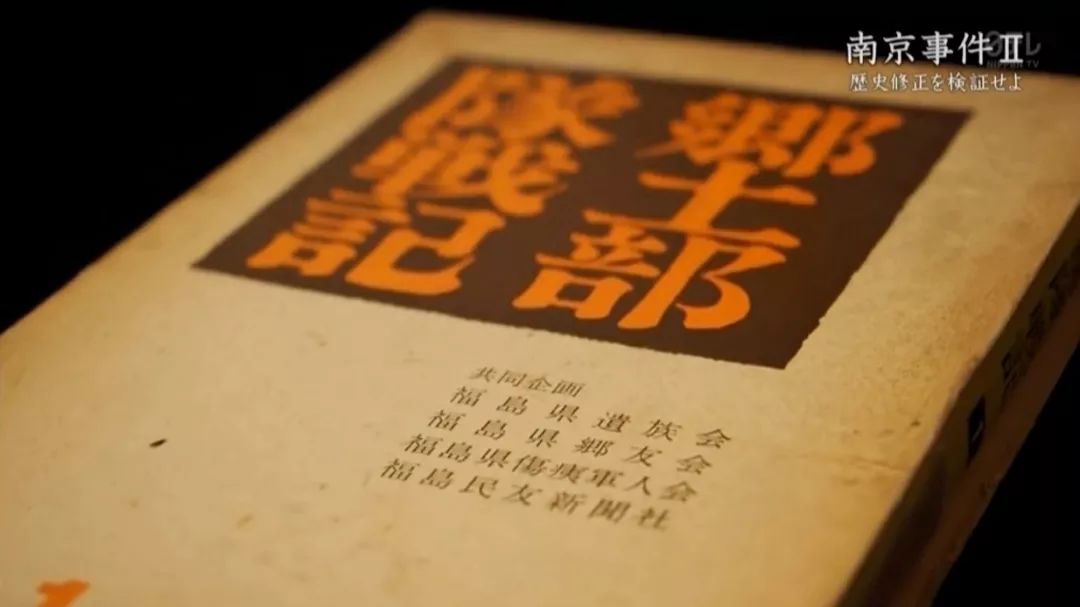 南京事件Ⅱ
歴史修正を検証せよ
日テレ
NIPPON TV
郷土部
隊戦記
共同企画
福島県遺族会
福島県郷友会
福島県傷痍軍人会
福島民友新聞社
1